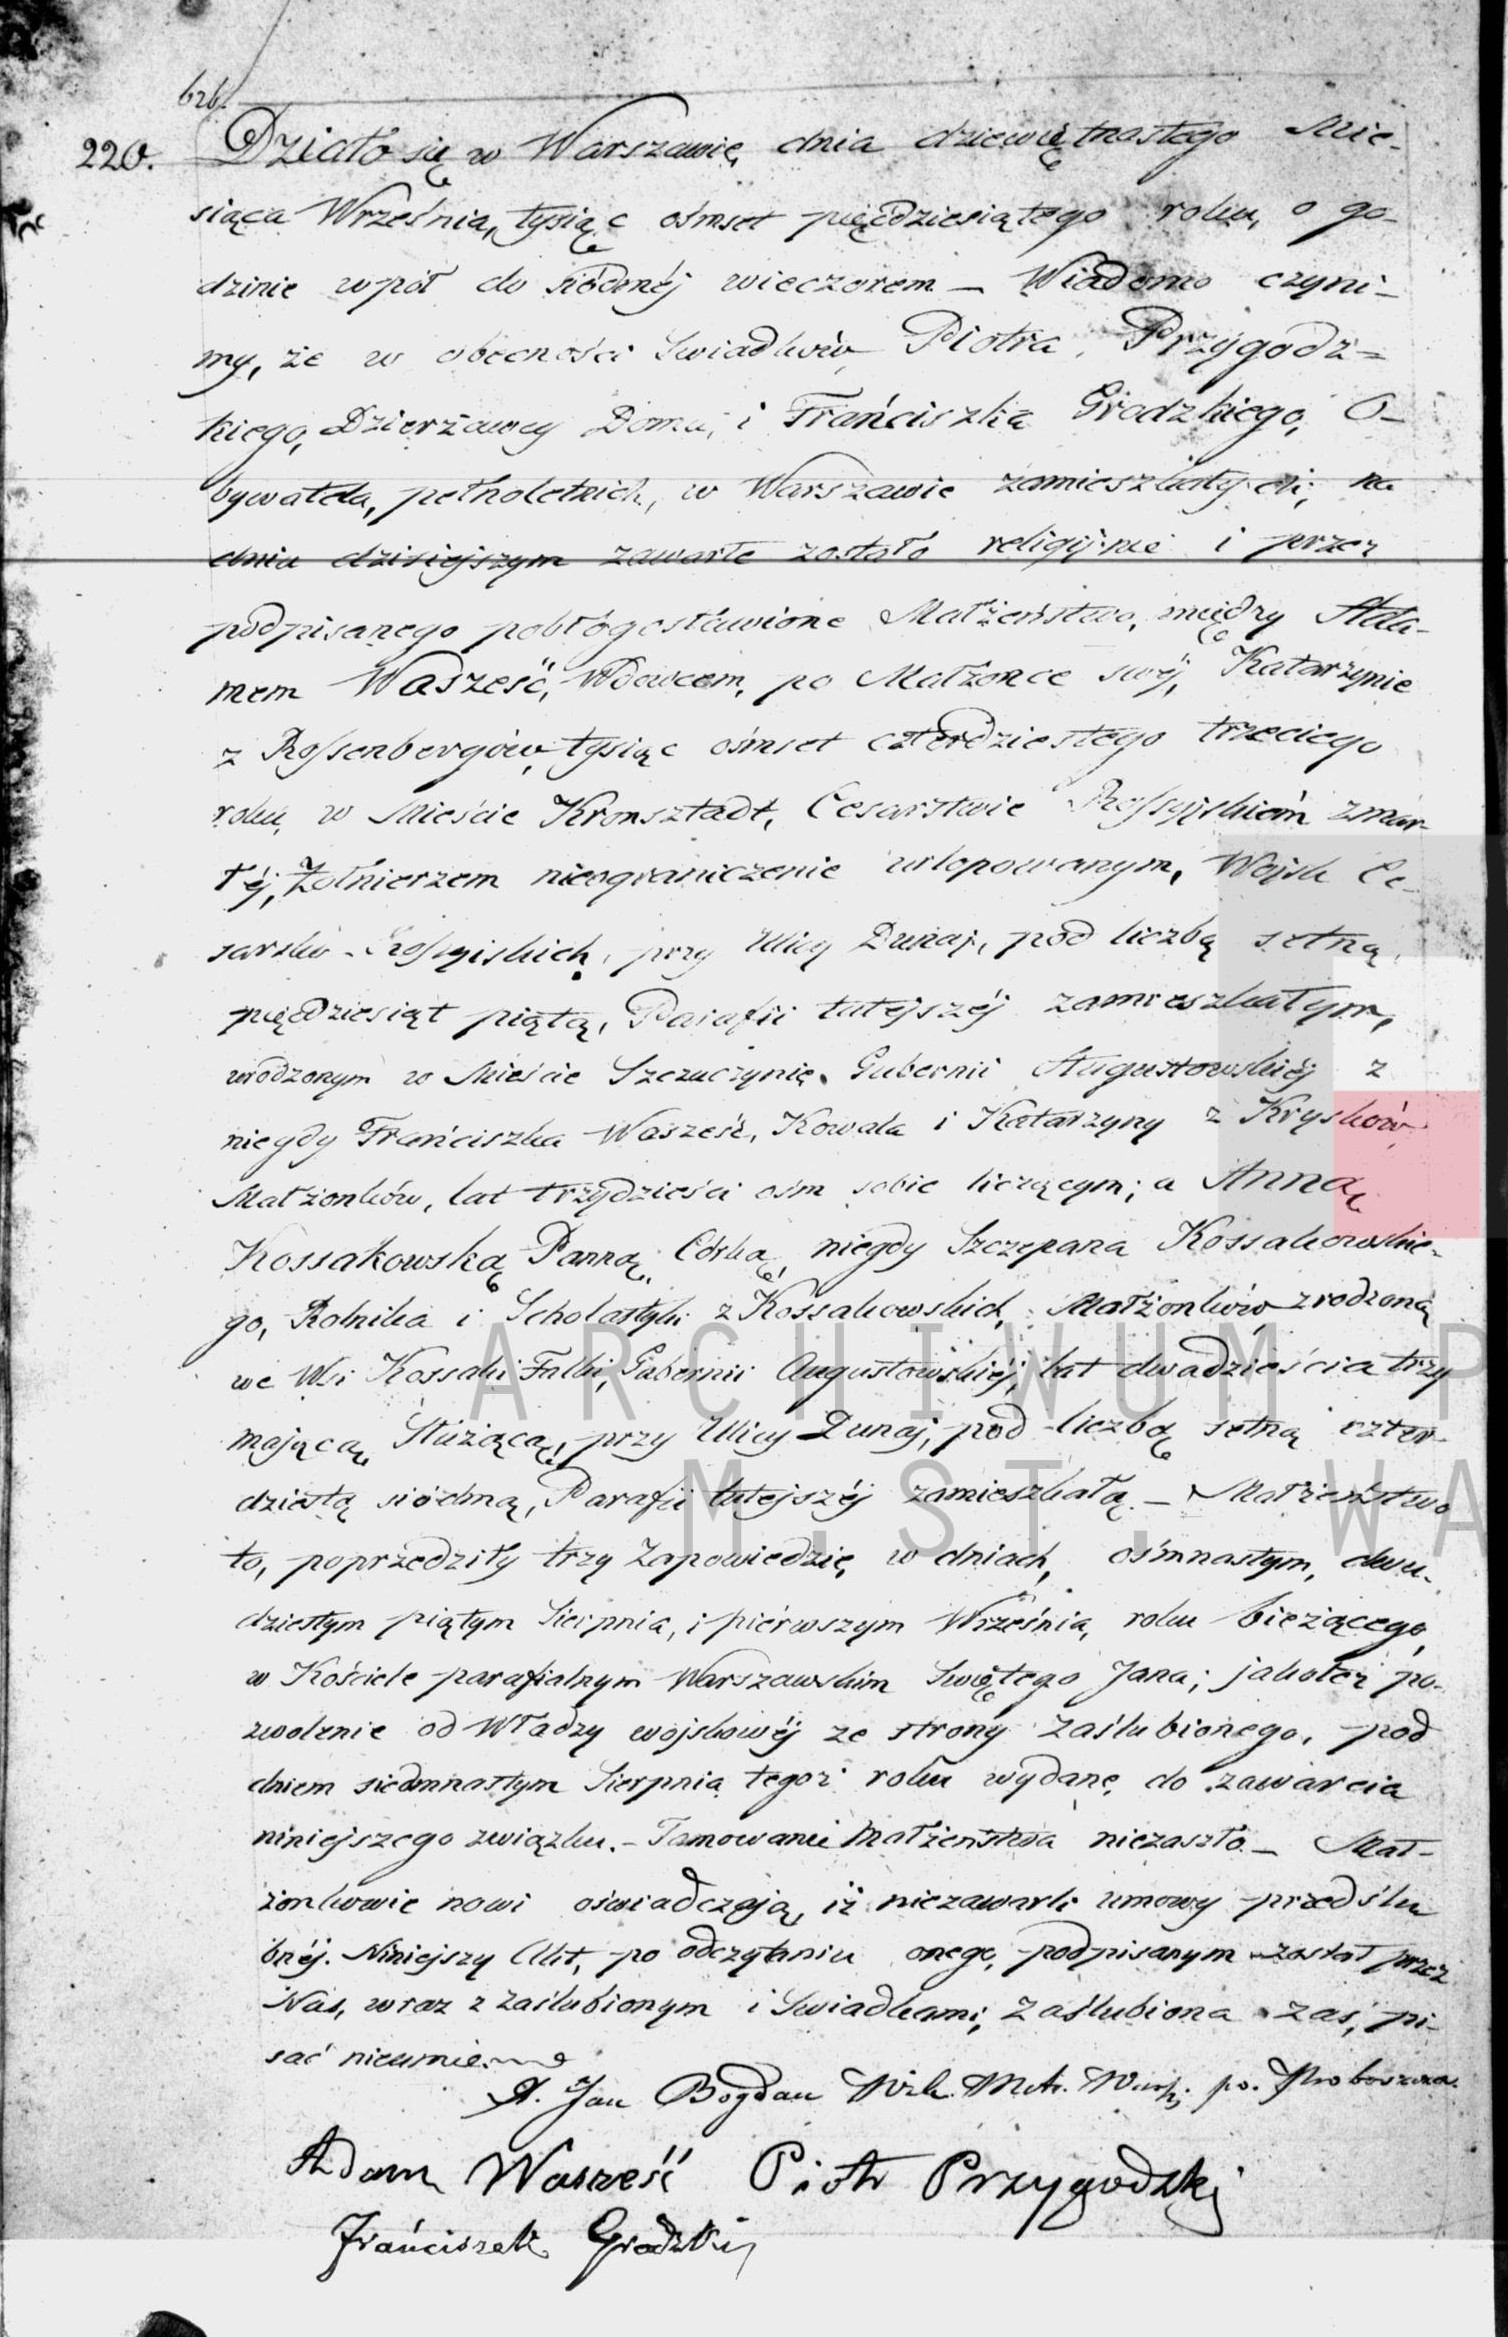 626.
220. Działo się w Warszawie, dnia dziewiętnastego Mie-
siąca Września, tysiąc ośmset pięćdziesiątego roku, o go-
dzinie wpół do siódméj wieczorem – Wiadomo czyni-
my, że w obecności Swiadków, Piotra Przygodz=
kiego, Dzierżawcy Domu, i Frańciszka Grodzkiego, O-
bywatela, pełnoletnich, w Warszawie zamieszkałych; na
dniu dzisiejszym zawarte zostało religijnie i przez
podpisanego pobłogosławione Małżeństwo, między Ada-
mem Wasześć, Wdowcem, po Małżonce swéj, Katarzynie
z Rossenbergów, tysiąc ośmset czterdziestego trzeciego
roku, w Mieście Kronsztadt, Cesarstwie Rossyjskiém zmar-
łéj, Żołnierzem nieograniczenie urlopowanym, Wojsk Ce-
sarsko-Rossyjskich, przy Ulicy Dunaj, pod liczbą setną
pięćdziesiąt piątą, Parafii tutejszéj zamieszkałym,
urodzonym w Mieście Szczuczynie, Gubernii Augustowskiéj z
niegdy Frańciszka Wasześć, Kowala i Katarzyny z Krysków
Małżonków, lat trzydzieści ośm sobie liczącym; a Anną
Kossakowską Panną, Córką, niegdy Szczepana Kossakowskie-
go, Rolnika i Scholastyki z Kossakowskich, Małżonków zrodzoną
we Wsi Kossaki Falki, Gubernii Augustowskiéj, lat dwadzieścia trzy
mającą, Służącą, przy Ulicy Dunaj, pod liczbą setną czter-
dziestą siódmą, Parafii tutejszéj zamieszkałą – Małżeństwo
to, poprzedziły trzy Zapowiedzie, w dniach, ośmnastym, dwu-
dziestym piątym Sierpnia, i piérwszym Września, roku bieżącego,
w Kościele parafialnym Warszawskim Swiętego Jana; jakoteż po-
zwolenie od Władzy wojskowéj ze strony zaślubionego, pod
dniem siedmnastym Sierpnia tegoż roku wydane, do zawarcia
niniejszego związku. – Tamowanie Małżeństwa niezaszło – Mał-
żonkowie nowi oświadczają, iż niezawarli umowy przedślu
bnéj. Niniejszy Akt, po odczytaniu onego, podpisanym został przez
Nas, wraz z zaślubionym i Swiadkami; zaślubiona zaś, pi-
sać nieumie.
X. Jan Bogdan Wik. Metr. Warsz. po. Proboszcza.
Adam Wasześć Piotr Przygodzki
Frańciszek Grodzki
ARCHIWUM P
M. ST. WA